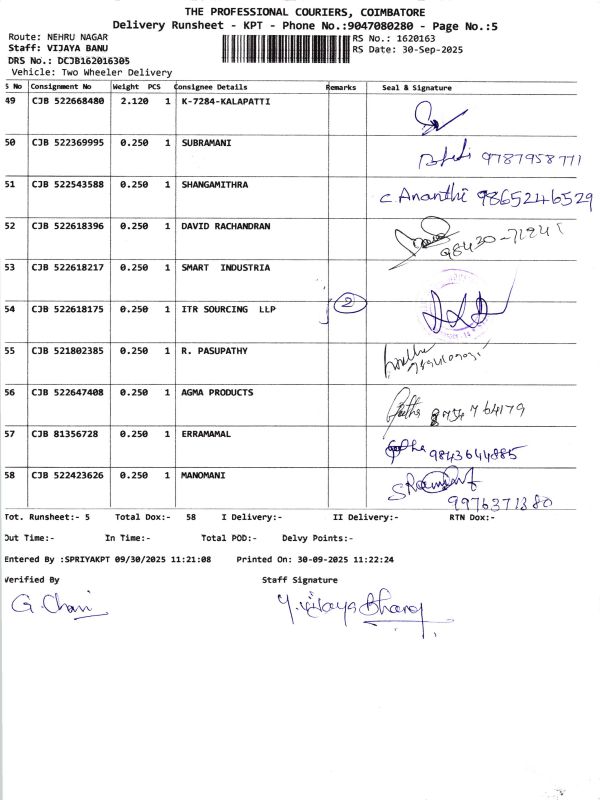 THE PROFESSIONAL COURIERS, COIMBATORE
Delivery Runsheet - KPT - Phone No.:9047080280 - Page No.:5
Route: NEHRU NAGAR RS No.: 1620163
Staff: VIJAYA BANU RS Date: 30-Sep-2025
DRS No.: DCJB162016305
Vehicle: Two Wheeler Delivery
S No Consignment No Weight PCS Consignee Details Remarks Seal & Signature
49 CJB 522668480 2.120 1 K-7284-KALAPATTI
50 CJB 522369995 0.250 1 SUBRAMANI
9787958771
51 CJB 522543588 0.250 1 SHANGAMITHRA
C Ananthi 9865246529
52 CJB 522618396 0.250 1 DAVID RACHANDRAN
53 CJB 522618217 0.250 1 SMART INDUSTRIA
54 CJB 522618175 0.250 1 ITR SOURCING LLP 2
55 CJB 521802385 0.250 1 R. PASUPATHY
56 CJB 522647408 0.250 1 AGMA PRODUCTS
8754764179
57 CJB 81356728 0.250 1 ERRAMAMAL
9843644885
58 CJB 522423626 0.250 1 MANOMANI
9976371380
Tot. Runsheet:- 5 Total Dox:- 58 I Delivery:- II Delivery:- RTN Dox:-
Out Time:- In Time:- Total POD:- Delvy Points:-
Entered By :SPRIYAKPT 09/30/2025 11:21:08 Printed On: 30-09-2025 11:22:24
Verified By Staff Signature
G. Chari Y. Vijaya Bhanu